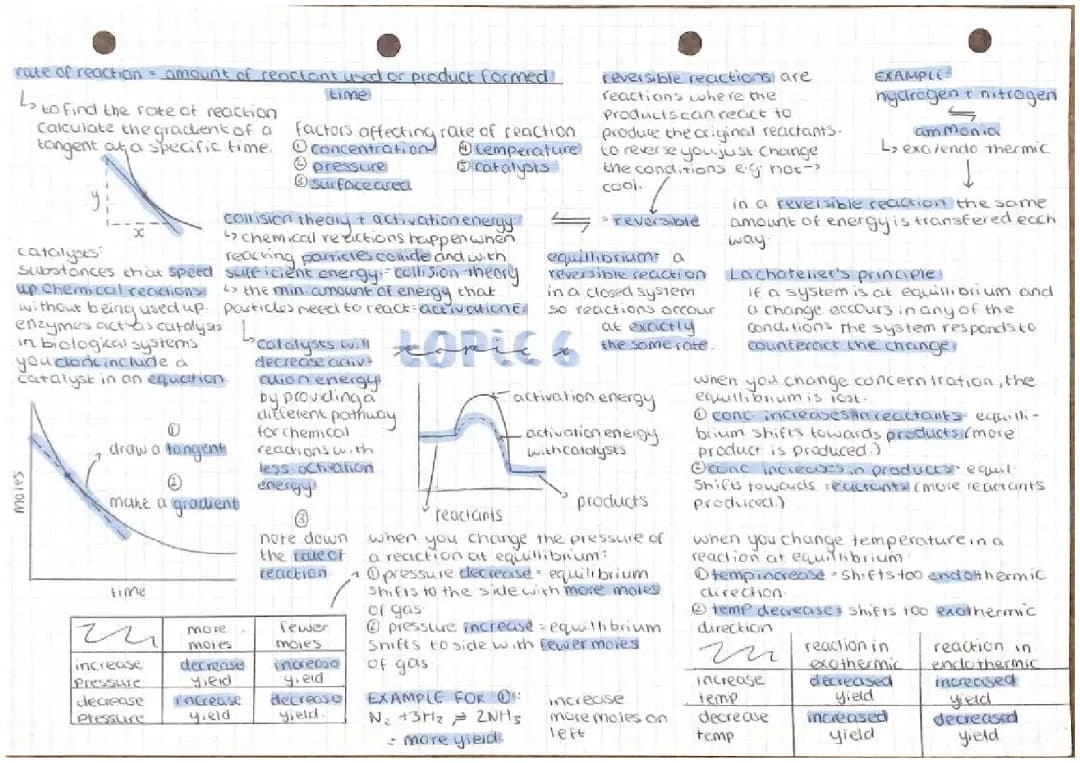 rate of reaction = amount of reactant used or product formed
time
↳ to find the rate of reaction
calculate the gradient of a
tangent at a specific time.
y
x
factors affecting rate of reaction
① concentration
② pressure
③ surface area
④ temperature
⑤ catalysts
reversible reactions are
reactions where the
products can react to
produce the original reactants.
to reverse you just change
the conditions e.g. hot →
cool.
⇌ = reversible
EXAMPLE:
hydrogen + nitrogen
⇌
ammonia
↳ exo/endo thermic
in a reversible reaction the same
amount of energy is transfered each
way.
catalysts:
substances that speed
up chemical reactions
without being used up.
enzymes act as catalysts
in biological systems
you don't include a
catalyst in an equation
collision theory + activation energy
↳ chemical reactions happen when
reacting particles collide and with
sufficient energy = collision theory
↳ the min. amount of energy that
particles need to react = activation E.
↳ catalysts will
decrease activ-
ation energy
by providing a
different pathway
for chemical
reactions with
less activation
energy.
topic 6
equilibrium: a
reversible reaction
in a closed system
so reactions occur
at exactly
the same rate.
La chatelier's principle:
if a system is at equilibrium and
a change occurs in any of the
conditions the system responds to
counteract the change.
moles
time
①
draw a tangent
②
make a gradient
③
note down
the rate of
reaction
activation energy
activation energy
with catalysts
reactants
products
when you change concerntration, the
equilibrium is lost.
① conc increases in reactants - equili-
brium shifts towards products (more
product is produced.)
② conc increases in products - equil.
shifts towards reactants (more reactants
produced.)
when you change the pressure of
a reaction at equilibrium:
① pressure decrease = equilibrium
shifts to the side with more moles
of gas.
② pressure increase = equilibrium
shifts to side with fewer moles
of gas
EXAMPLE FOR ①:
N₂ + 3H₂ ⇌ 2NH₃
= more yield
increase
more moles on
left
when you change temperature in a
reaction at equilibrium.
① temp increase = shifts too endothermic
direction.
② temp decrease = shifts too exothermic
direction
more moles
fewer moles
increase pressure
decrease yield
increase yield
decrease pressure
increase yield
decrease yield.
reaction in exothermic
reaction in endothermic
increase temp
decreased yield
increased yield
decrease temp
increased yield
decreased yield